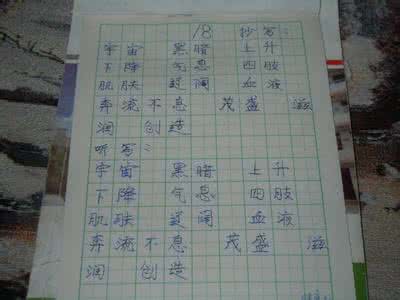 18 抄写:
宇宙 黑暗 上升
下降 气息 四肢
肌肤 辽阔 血液
奔流不息 茂盛 滋
润 创造
听写:
宇宙 黑暗 上升
下降 气息 四肢
肌肤 辽阔 血液
奔流不息 茂盛 滋
润 创造